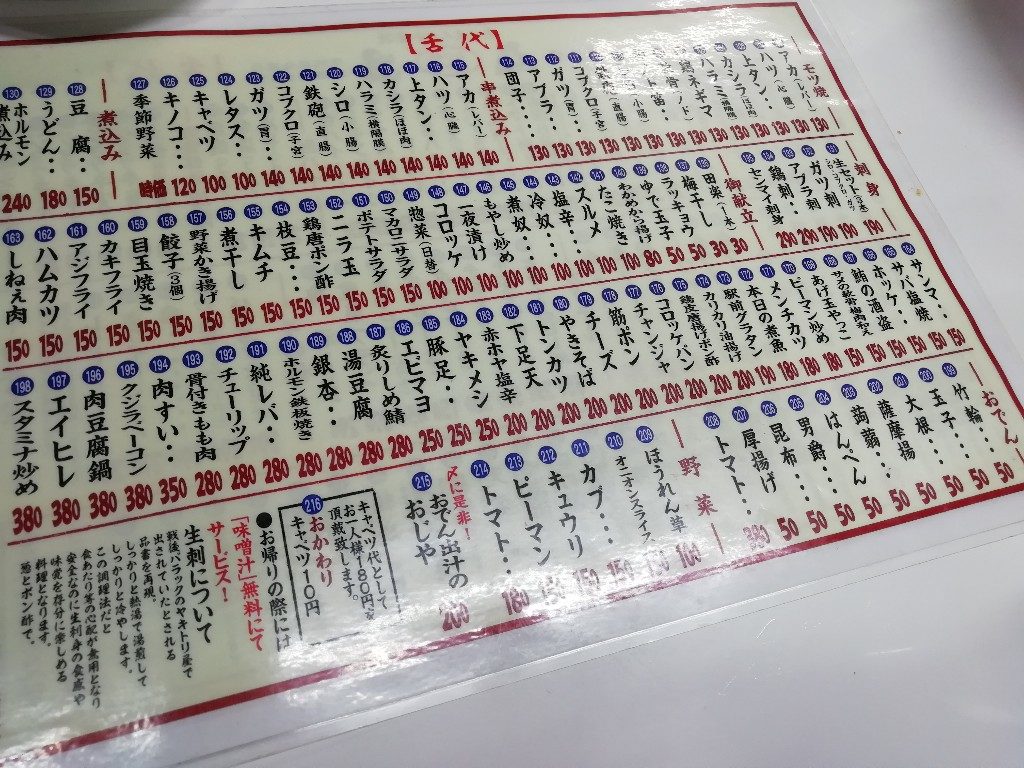 【舌代】
モツ焼
アカ(レバー) 130
ハツ(心臓) 130
上タン・・ 130
カシラ(ほほ肉) 130
ハラミ(横隔膜) 130
111 コブクロ(子宮) 130
112 ガツ(胃) 130
113 アブラ・・ 130
114 団子・・・ 130
串煮込み
115 アカ(レバー) 140
116 ハツ(心臓) 140
117 上タン・・ 140
118 カシラ(ほほ肉) 140
119 ハラミ(横隔膜) 140
120 シロ(小腸) 140
121 鉄砲(直腸) 140
122 コブクロ(子宮) 140
123 ガツ(胃) 140
124 レタス・・ 100
125 キャベツ 100
126 キノコ・・ 120
127 季節野菜 時価
煮込み
128 豆腐・・ 150
129 うどん・・ 180
130 ホルモン煮込み 240
刺身
131 生センマイ 190
132 ガツ刺 190
133 アブラ刺 190
134 鶏刺・・ 290
135 センマイ刺身 290
御献立
136 田楽(一本) 30
137 梅干し 30
138 ラッキョウ 50
139 ゆで玉子 50
140 わかめから揚げ 80
141 たこ焼き 100
142 スルメ 100
143 塩辛・・ 100
144 冷奴・・ 100
145 煮奴・・ 100
146 もやし炒め 100
147 一夜漬け 100
148 コロッケ 100
149 惣菜(日替) 150
150 マカロニサラダ 150
151 ポテトサラダ 150
152 ニラ玉 150
153 鶏唐ポン酢 150
154 枝豆・・ 150
155 キムチ 150
156 煮干し 150
157 野菜かき揚げ 150
158 餃子(3個) 150
159 目玉焼き 150
160 カキフライ 150
161 アジフライ 150
162 ハムカツ 150
163 しねぇ肉 150
164 サンマ・・ 150
165 サバ塩焼 150
166 ホッケ・・ 150
167 鮪の酒盗 150
168 150
169 あげ玉やっこ 150
170 ピーマン炒め 180
メンチカツ 180
171 本日の煮魚 190
172 駅前グラタン 200
173 カリカリ油揚げ 200
174 鶏皮唐揚げポン酢 200
175 コロッケパン 200
176 チャンジャ 200
177 筋ポン 200
178 チーズ 200
179 やきそば 200
180 トンカツ 200
181 下足天 200
182 赤ホヤ塩辛 200
183 ヤキメシ 250
184 豚足・・ 250
185 エビマヨ 250
186 炙りしめ鯖 280
187 湯豆腐 280
188 銀杏・・ 280
189 ホルモン鉄板焼き 280
190 純レバ・・ 280
191 チューリップ 280
192 骨付きもも肉 280
193 肉すい・・ 350
194 クジラベーコン 380
195 肉豆腐鍋 380
196 エイヒレ 380
198 スタミナ炒め 380
おでん
竹輪・・ 50
199 玉子・・ 50
200 大根・・ 50
201 薩摩揚 50
202 蒟蒻・・ 50
203 はんぺん 50
204 男爵・・ 50
205 昆布・・ 50
206 厚揚げ 50
207 トマト・・
野菜
208 ほうれん草 100
209 オニオンスライス 150
210 カブ・・・ 150
211 キュウリ 150
212 ピーマン 150
213 トマト・・ 180
〆に是非!
215 おでん出汁のおじや 200
キャベツ代として
お一人様180円を
頂戴致します。
216 おかわり
キャベツ0円
●お帰りの際には
「味噌汁」無料にて
サービス!
生刺について
戦後、バラックのヤキトリ屋で
出されていたとされる
品書を再現。
しっかりと熱湯で湯煎して
しっかりと冷やします。
この調理法だと
食あたり等の心配が無用となり
安全なのに生刺身の食感や
味覚を存分に楽しめる
料理となります。
葱とポン酢で。